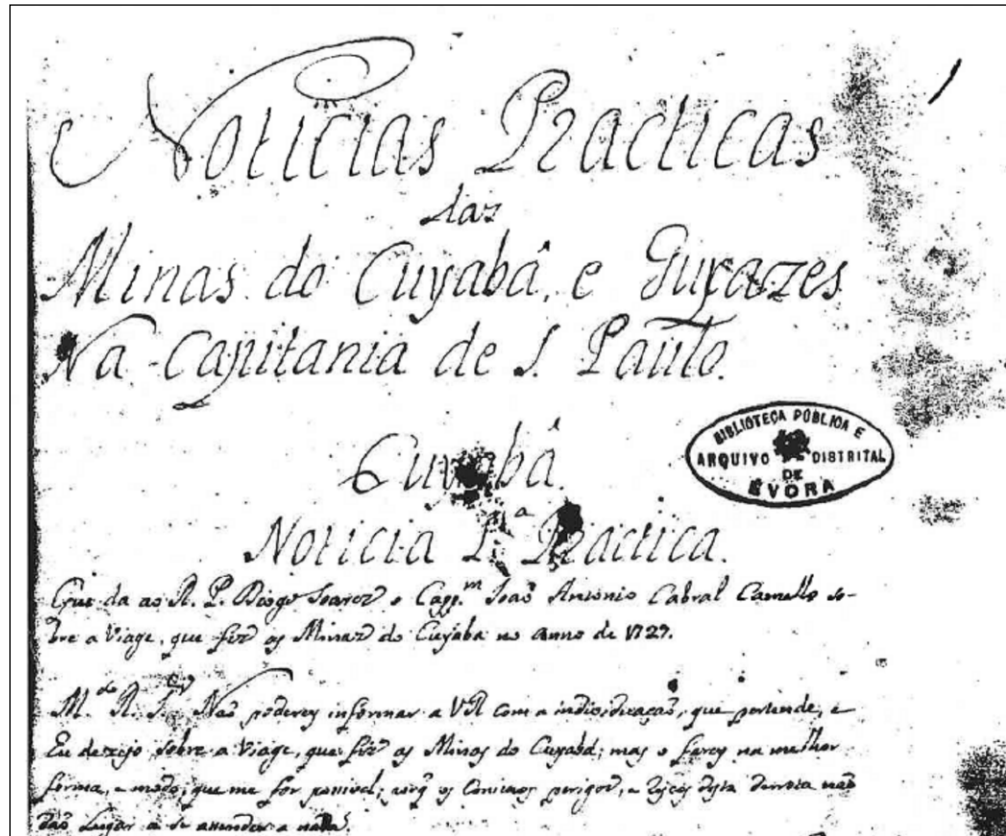 Noticias Practicas
das
Minas do Cuyabâ, e Guyazes
Na Capitania de S. Paulo.
BIBLIOTECA PÚBLICA E
ARQUIVO DISTRITAL
DE
EVORA
Cuyabâ.
Noticia 1.ª Practica.
Que da ao R. P. Diogo Soares o Capp.m João Antonio Cabral Camello so-
bre a Viage, que fez as Minas do Cuyabâ no anno de 1727.
M.to R. S.or Naõ poderey informar a VR com a individuaçaõ, que pertende, e
Eu dezejo sobre a Viage, que fiz as Minas do Cuyabâ; mas o farey na melhor
forma, e modo, que me for possivel; porq os Continuos perigos, e desta derrota naõ
daõ Lugar a se attender a nada.